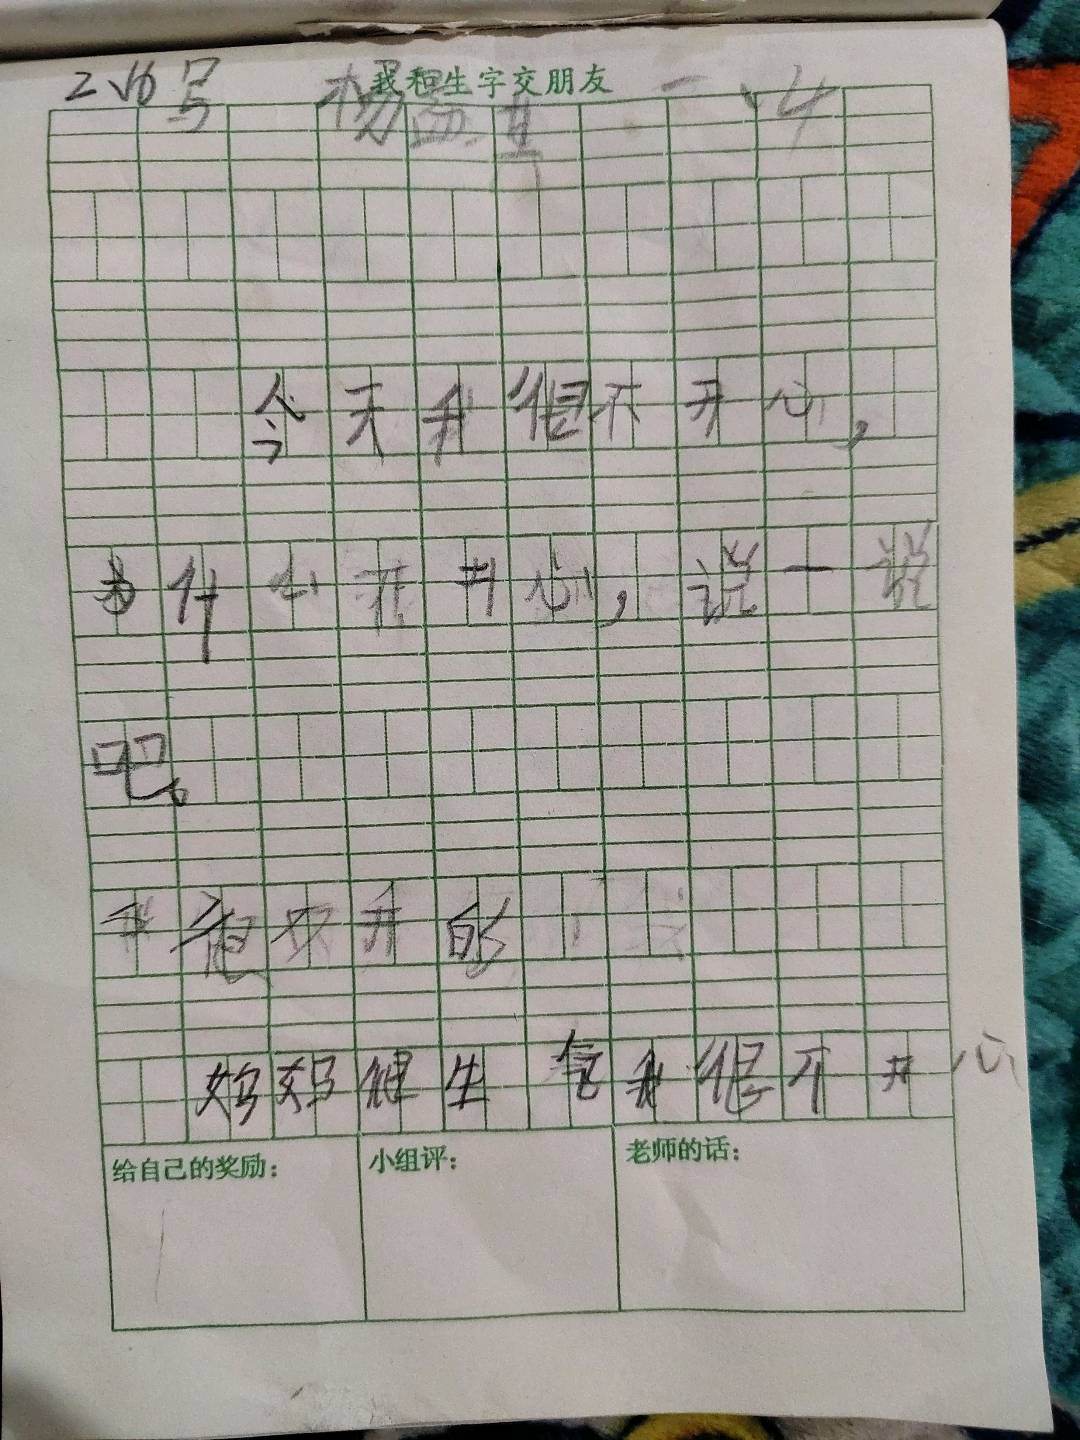 我和生字交朋友
2 写 杨 一、4
今天我很不开心，
为什么不开心，说一说
吧。
我很不开的
妈妈很生气我很不开心
给自己的奖励：
小组评：
老师的话：